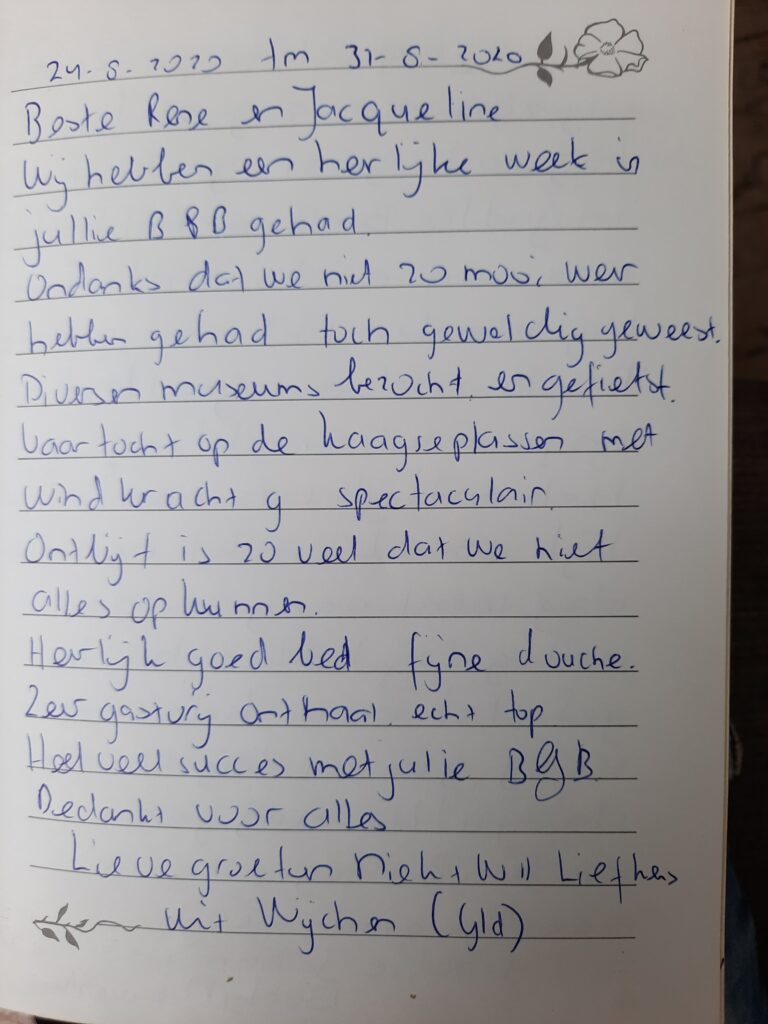 24-8-2020 tm 31-8-2020
Beste Rene en Jacqueline
Wij hebben een herlijke week in
jullie B&B gehad.
Ondanks dat we niet zo mooi weer
hebben gehad toch geweldig geweest.
Diversen museums bezocht en gefietst.
Vaartocht op de kaagseplassen met
windkracht 9 spectaculair.
Ontbijt is zo veel dat we niet
alles op kunnen.
Herlijk goed bed fijne douche.
Zeer gastvrij onthaal echt top
Heel veel succes met julie B&B
Bedankt voor alles
Lieve groeten Wil
uit Wijchen (Gld)